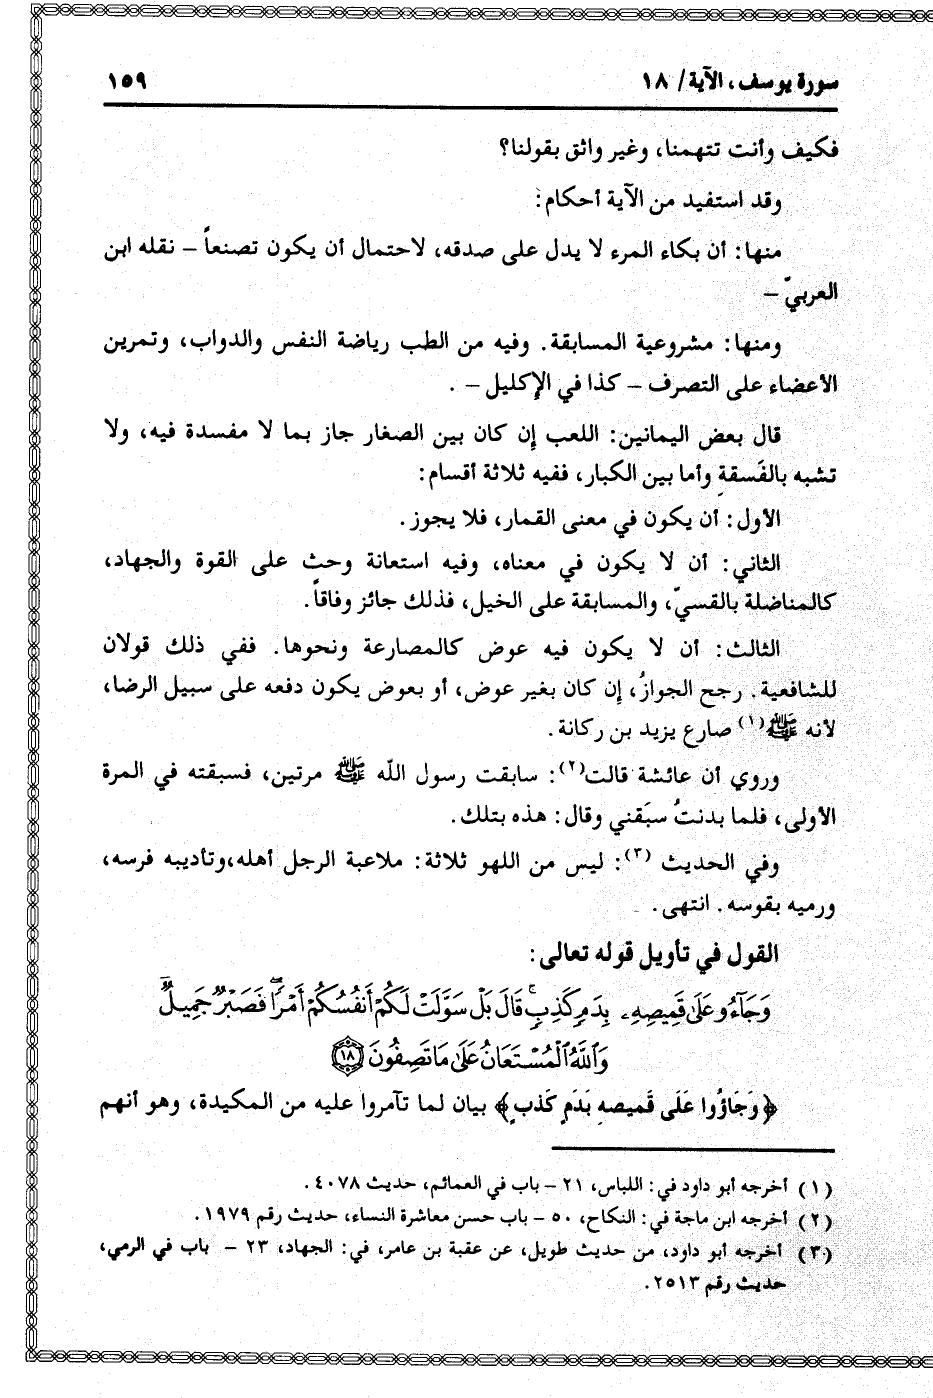 سورة يوسف، الآية/ ١٨
١٥٩
فكيف وأنت تتهمنا، وغير واثق بقولنا؟
وقد استفيد من الآية أحكام:
منها: أن بكاء المرء لا يدل على صدقه، لاحتمال أن يكون تصنعاً – نقله ابن
العربيّ –
ومنها: مشروعية المسابقة. وفيه من الطب رياضة النفس والدواب، وتمرين
الأعضاء على التصرف – كذا في الإكليل – .
قال بعض اليمانين: اللعب إن كان بين الصغار جاز بما لا مفسدة فيه، ولا
تشبه بالفَسقةِ وأما بين الكبار، ففيه ثلاثة أقسام:
الأول: أن يكون في معنى القمار، فلا يجوز.
الثاني: أن لا يكون في معناه، وفيه استعانة وحث على القوة والجهاد،
كالمناضلة بالقسيّ، والمسابقة على الخيل، فذلك جائز وفاقاً.
الثالث: أن لا يكون فيه عوض كالمصارعة ونحوها. ففي ذلك قولان
للشافعية. رجح الجوازُ، إن كان بغير عوض، أو بعوض يكون دفعه على سبيل الرضا،
لأنه ﷺ(١) صارع يزيد بن ركانة.
وروي أن عائشة قالت(٢): سابقت رسول الله ﷺ مرتين، فسبقته في المرة
الأولى، فلما بدنتُ سبَقني وقال: هذه بتلك.
وفي الحديث (٣): ليس من اللهو ثلاثة: ملاعبة الرجل أهله،وتأديبه فرسه،
ورميه بقوسه. انتهى.
القول في تأويل قوله تعالى:
وَجَآءُو عَلَىٰ قَمِيصِهِۦ بِدَمٍ كَذِبٍ ۚ قَالَ بَلْ سَوَّلَتْ لَكُمْ أَنفُسُكُمْ أَمْرًا ۖ فَصَبْرٌ جَمِيلٌ ۖ
وَٱللَّهُ ٱلْمُسْتَعَانُ عَلَىٰ مَا تَصِفُونَ ١٨
﴿وَجَاؤُوا عَلَى قَميصهِ بَدَمٍ كَذبٍ﴾ بيان لما تآمروا عليه من المكيدة، وهو أنهم
(١) أخرجه أبو داود في: اللباس، ٢١ – باب في العمائم، حديث ٤٠٧٨.
(٢) أخرجه ابن ماجة في: النكاح، ٥٠ – باب حسن معاشرة النساء، حديث رقم ١٩٧٩.
(٣) أخرجه أبو داود، من حديث طويل، عن عقبة بن عامر، في: الجهاد، ٢٣ – باب في الرمي،
حديث رقم ٢٥١٣.